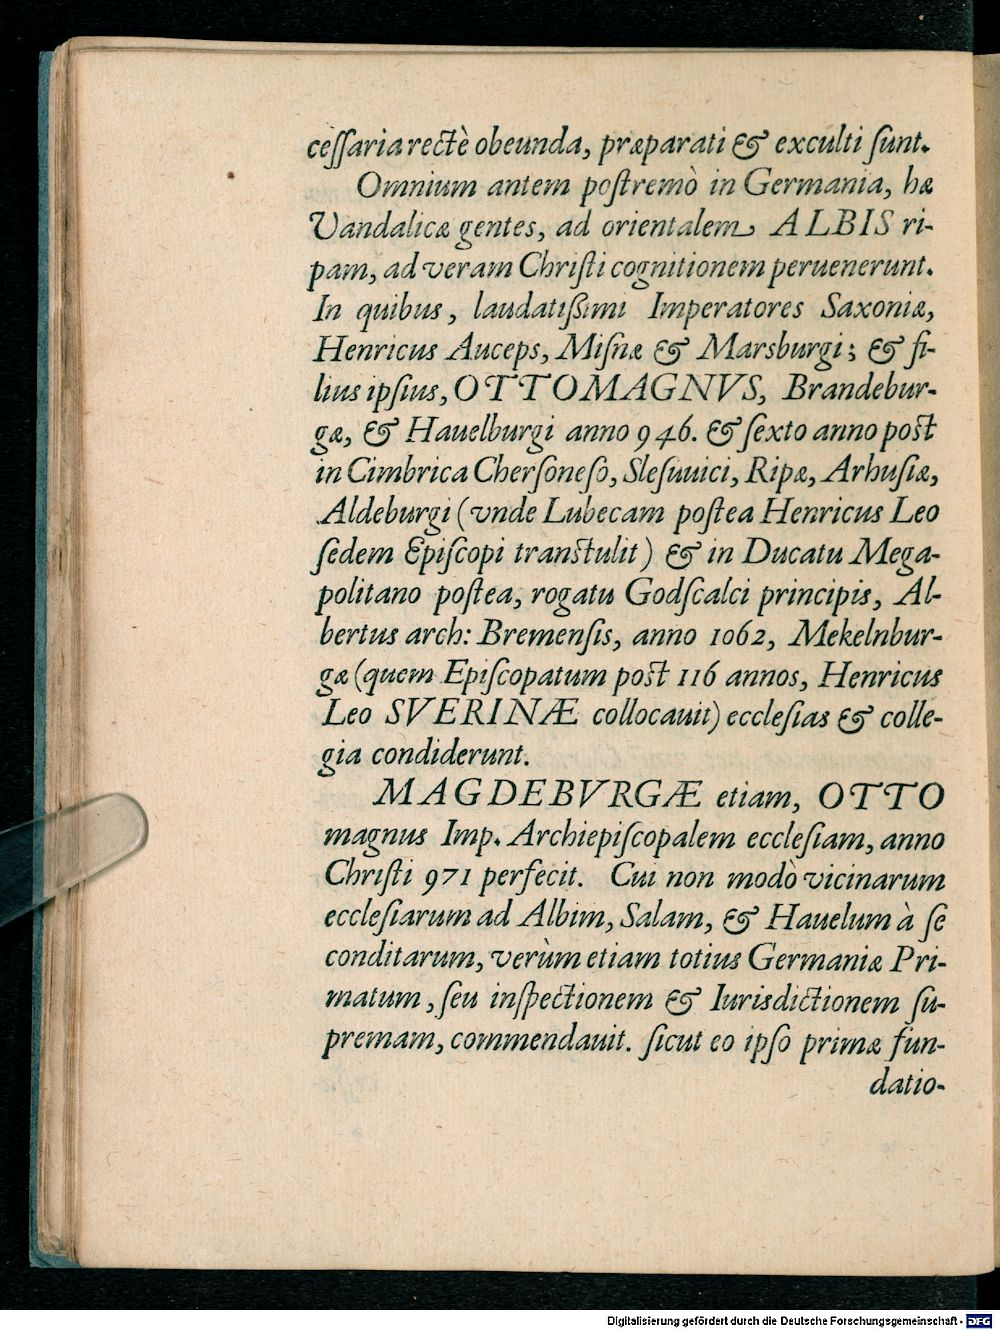 ceſſaria rectè obeunda, præparati & exculti ſunt.
Omnium antem poſtremò in Germania, hæ
Vandalicæ gentes, ad orientalem ALBIS ri-
pam, ad veram Chriſti cognitionem peruenerunt.
In quibus, laudatiſſimi Imperatores Saxoniæ,
Henricus Auceps, Miſnæ & Marsburgi; & fi-
lius ipſius, OTTO MAGNVS, Brandebur-
gæ, & Hauelburgi anno 946. & ſexto anno poſt
in Cimbrica Cherſoneſo, Sleſuuici, Ripæ, Arhuſiæ,
Aldeburgi (vnde Lubecam poſtea Henricus Leo
ſedem Epiſcopi tranſtulit) & in Ducatu Mega-
politano poſtea, rogatu Godſcalci principis, Al-
bertus arch: Bremenſis, anno 1062, Mekelnbur-
gæ (quem Epiſcopatum poſt 116 annos, Henricus
Leo SVERINÆ collocauit) eccleſias & colle-
gia condiderunt.
MAGDEBVRGÆ etiam, OTTO
magnus Imp. Archiepiſcopalem eccleſiam, anno
Chriſti 971 perfecit. Cui non modò vicinarum
eccleſiarum ad Albim, Salam, & Hauelum à ſe
conditarum, verùm etiam totius Germaniæ Pri-
matum, ſeu inſpectionem & Iurisdictionem ſu-
premam, commendauit. ſicut eo ipſo primæ fun-
datio-
Digitalisierung gefördert durch die Deutsche Forschungsgemeinschaft - DFG